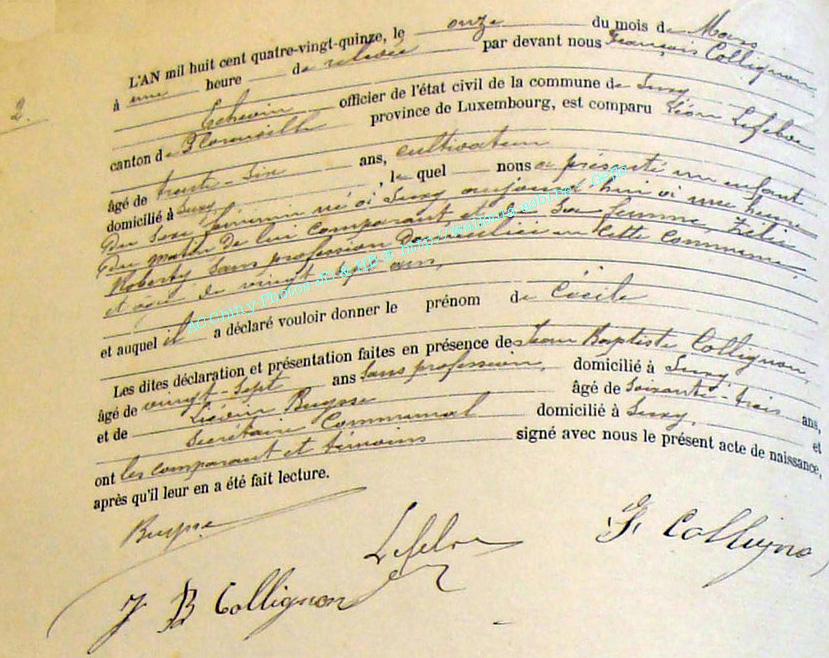 L'AN mil huit cent quatre-vingt-quinze, le onze du mois de Mars
à une heure de relevée par devant nous François Collignon,
Echevin officier de l'état civil de la commune de Suxy
canton de Florenville province de Luxembourg, est comparu Léon Lefebvre
âgé de trente-six ans, cultivateur
domicilié à Suxy, le quel nous a présenté un enfant
du sexe féminin né à Suxy aujourd'hui à une heure
du matin de lui comparant et de Sa femme, Zélie
Roberty Sans profession domiciliée en cette commune,
et âgée de vingt sept ans,
et auquel il a déclaré vouloir donner le prénom de Cécile
Les dites déclaration et présentation faites en présence de Jean Baptiste Collignon,
âgé de vingt-sept ans Sans profession, domicilié à Suxy
et de Buysse âgé de Soixante-trois ans,
Secrétaire Communal domicilié à Suxy, et
ont les comparant et témoins signé avec nous le présent acte de naissance,
après qu'il leur en a été fait lecture.
2.
Buysse
Lefebvre
J B Collignon